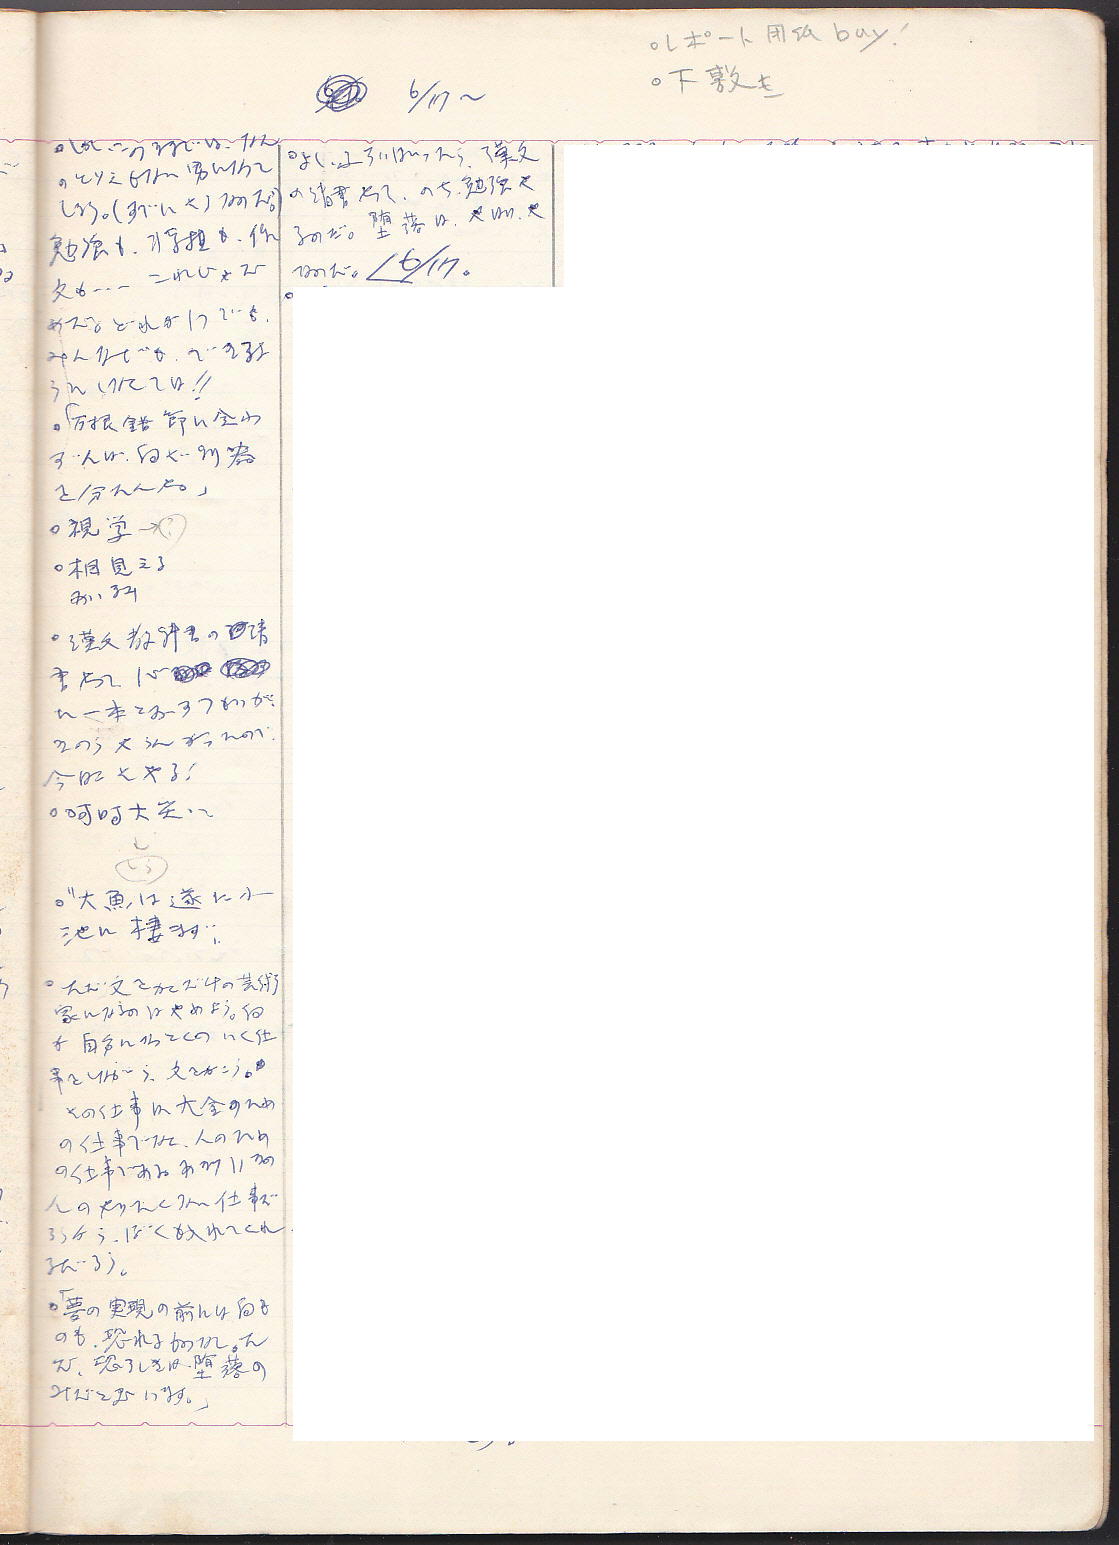 レポート用紙 buy!
下敷も
6/17〜
しかし、このままでは、なん
のとりえもない男になって
しまう。(すでにそうなのだ。)
勉強も、
文も… これじゃだ
めだ。どれか1つでも、
みんなでも、できるよ
うにしなくては!!
「盤根錯節に会わ
ずんば、何ぞ利器
を分たんや。」
視学→(?)
相見える
漢文教科書の清
書やって
今日こそやる!
呵呵大笑

「大魚は遂に小
池に棲まず」
ただ文をかくだけの芸術
家になるのはやめよう。何
か自分になっとくのいく仕
事をしながら、文をかこう。
その仕事は大金のため
の仕事でなく、人のため
の仕事である。
人のやりたくない仕事だ
ろうから、ぼくも入れてくれ
るだろう。
「夢の実現の前には何も
のも、恐れるものなし。た
だ、恐ろしきは、堕落の
みだと思います。」
漢文
の清書やって、のち、勉強や
るのだ。堕落は、
なのだ。6/17。